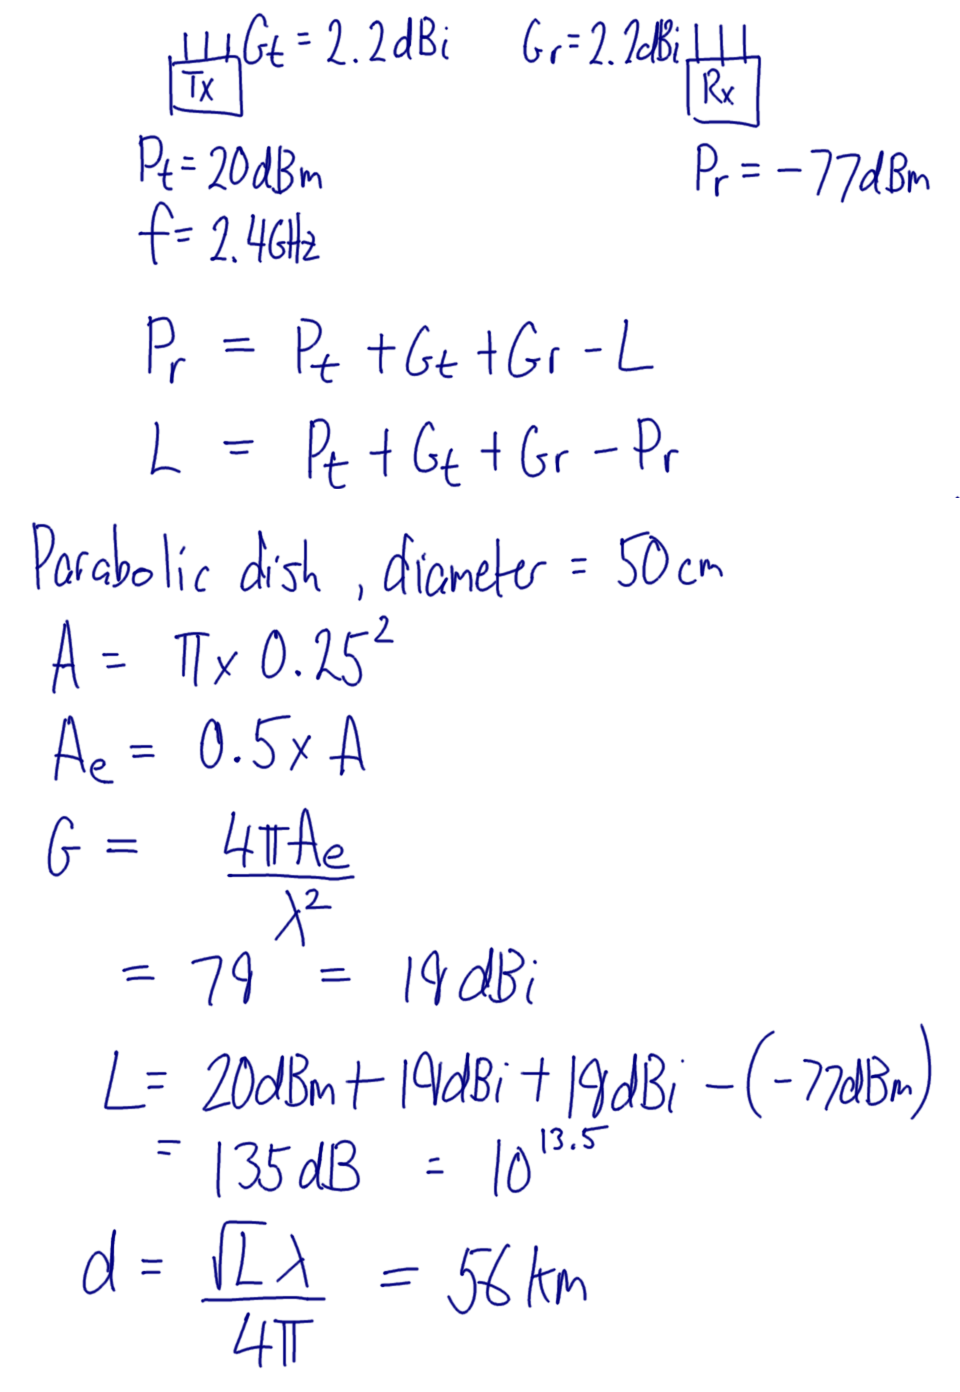 Gt = 2.2dBi Gr = 2.2dBi
Tx Rx
Pt = 20dBm Pr = -77dBm
f = 2.4GHz
Pr = Pt + Gt + Gr - L
L = Pt + Gt + Gr - Pr
Parabolic dish, diameter = 50cm
A = π x 0.25²
Ae = 0.5 x A
G = 4πAe / λ²
= 79 = 19dBi
L = 20dBm + 19dBi + 19dBi - (-77dBm)
= 135dB = 10^13.5
d = √L λ / 4π = 56 km